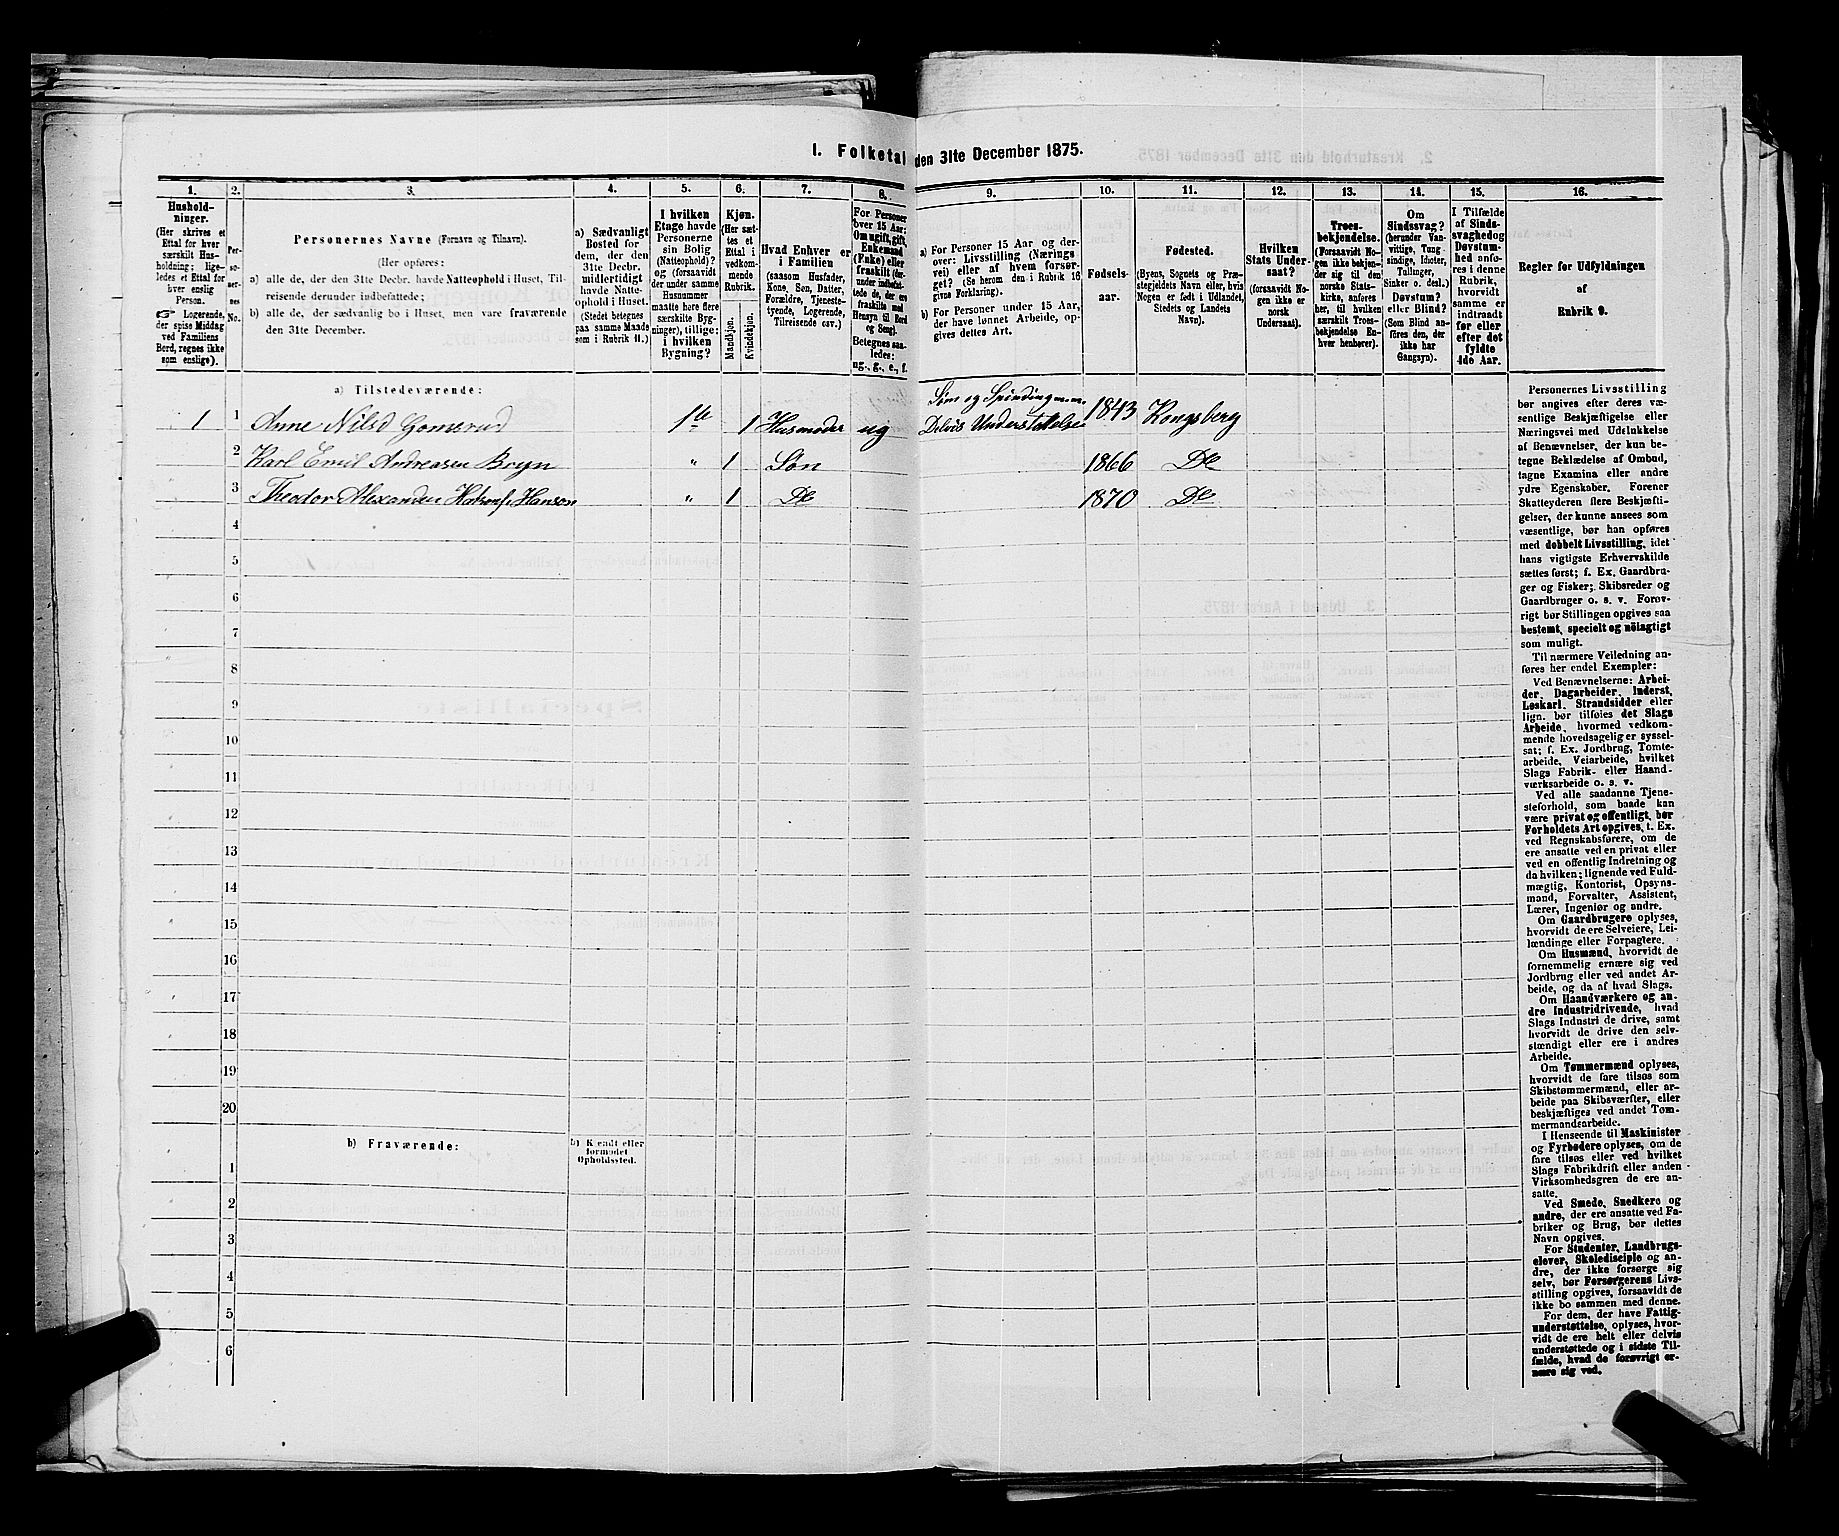 I. Folketal den 31te December 1875.
1.
2.
3.
4.
5.
6.
7.
8.
9.
10.
11.
12.
13.
14.
15.
16.
Hushold-
ninger.
(Her skrives et
Ettal for hver
særskilt Hus-
holdning; lige-
ledes et Ettal for
hver enslig
Person.
☞ Logerende,
der spise Middag
ved Familiens
Bord, regnes ikke
som enslige).
Per-
so-
ner-
nes
No.
Personernes Navne (Fornavn og Tilnavn).
(Her opføres:
a) alle de, der den 31te Decbr. havde Natteophold i Huset, Til-
reisende derunder indbefattede;
b) alle de, der sædvanlig bo i Huset, men vare fraværende
den 31te December.
a) Sædvanligt
Bosted for
dem, der den
31te Decbr.
midlertidigt
havde Natte-
ophold i Huset.
(Stedet betegnes
paa samme Maade
som i Rubrik 11.)
I hvilken
Etage havde
Personerne
sin Bolig
(Natteophold)?
og (forsaavidt
der under samme
Husnummer
maatte høre flere
særskilte Byg-
ninger), tillige:
i hvilken
Bygning?
Kjøn.
(Her sæt-
tes et
Ettal i
vedkom-
mende
Rubrik.
Mandkjøn.
Kvindekjøn.
Hvad Enhver er
i Familien
(saasom Husfader,
Kone, Søn, Datter,
Forældre, Tjeneste-
tyende, Logerende,
Tilreisende osv.)
For Personer
over 15 Aar:
Om ugift, gift,
Enkemand
(Enke) eller
fraskilt (der-
under indbefat-
tede de, der ere
fraskilte med
Hensyn til Bord
og Seng).
Betegnes saa-
ledes:
ug., g., e., f.
a) For Personer 15 Aar og der-
over: Livsstilling (Nærings
vei) eller af hvem forsør-
get? (Se herom den i Rubrik 16
givne Forklaring).
b) For Personer under 15 Aar,
der have lønnet Arbeide, op-
gives dettes Art.
Fødsels-
aar.
Fødested.
(Byens, Sognets og Præ-
stegjeldets Navn eller, hvis
Nogen er født i Udlandet,
Stedets og Landets
Navn).
Hvilken
Stats Under-
saat?
(forsaavidt No-
gen ikke er
norsk
Undersaat).
Troes-
bekjendelse.
(Forsaavidt No-
gen ikke bekjen-
der sig til den
norske Stats-
kirke, anføres
her, til hvilken
særskilt Troes-
bekjendelse En-
hver henhører).
Om
Sindssvag?
(herunder Van-
vittige, Tung-
sindige, Idioter,
Tullinger,
Sinker o. desl.)
Døvstum?
eller Blind?
(Som Blind an-
føres den, der
ikke har
Gangsyn).
I Tilfælde
af Sinds-
svaghed og
Døvstum-
hed anfø-
res i denne
Rubrik,
hvorvidt
samme er
indtraadt
før eller
efter det
fyldte
4de Aar.
Regler for Udfyldningen
af
Rubrik 9.
a) Tilstedeværende:
1 1 Anne Nilsd Gomerud 1ste 1 Husmoder ug Søm og Spinding Delvis Understøttelse 1843 Kongsberg
2 Karl Emil Andreasen Bryn " 1 Søn 1866 Do
3 Theodor Alexander Hansen " 1 Do 1870 Do
4
5
6
7
8
9
10
11
12
13
14
15
16
17
18
19
20
b) Fraværende:
b) Kjendt eller
formodet
Opholdssted.
1
2
3
4
5
6
Personernes Livsstilling
bør angives efter deres væ-
sentlige Beskjæftigelse eller
Næringsvei med Udelukkelse
af Benævnelser, der kun be-
tegne Beklædelse af Ombud,
tagne Examina eller andre
ydre Egenskaber. Forener
Skatteyderen flere Beskjæfti-
gelser, der kunne ansees som
væsentlige, bør han opføres
med dobbelt Livsstilling, idet
hans vigtigste Erhvervskilde
sættes først; f. Ex. Gaardbru-
ger og Fisker; Skibsreder og
Gaardbruger o. s. v. Forøv-
rigt bør Stillingen opgives saa
bestemt, specielt og nöiagtigt
som muligt.
Til nærmere Veiledning an-
føres her endel Exempler:
Ved Benævnelserne: Arbei-
der, Dagarbeider, Inderst,
Løskarl, Strandsidder eller
lign. bør tilføies det Slags
Arbeide, hvormed vedkom-
mende hovedsagelig er syssel-
sat; f. Ex. Jordbrug, Tomte-
arbeide, Veiarbeide, hvilket
Slags Fabrik- eller Haand-
værksarbeide o. s. v.
Ved alle saadanne Tjene-
steforhold, som baade kan
være privat og offentligt, bør
Forholdets Art opgives, f. Ex.
ved Regnskabsførere, om de
ere ansatte ved en privat eller
ved en offentlig Indretning og
da hvilken; lignende ved Fuld-
mægtig, Kontorist, Opsyns-
mand, Forvalter, Assistent,
Lærer, Ingeniør og andre.
Om Gaardbrugere oplyses,
hvorvidt de ere Selveiere, Lei-
lændinge eller Forpagtere.
Om Husmænd, hvorvidt de
fornemmelig ernære sig ved
Jordbrug eller ved andet Ar-
beide, og da af hvad Slags.
Om Haandværkere og an-
dre Industridrivende, hvad
Slags Industri de drive, samt
hvorvidt de drive den selv-
stændigt eller ere i andres
Arbeide.
Om Tømmermænd oplyses,
hvorvidt de fare tilsøs som
Skibstømmermænd, eller ar-
beide paa Skibsværfter, eller
beskjæftiges ved andet Tøm-
mermandsarbeide.
I Henseende til Maskinister
og Fyrbødere oplyses, om de
fare tilsøs eller ved hvilket
Slags Fabrikdrift eller anden
Virksomhedsgren de ere an-
satte.
Ved Smede, Snedkere og
andre, der ere ansatte ved Fa-
briker og Brug, bør dettes
Navn opgives.
For Studenter, Landbrugs-
elever, Skoledisciple og an-
dre, der ikke forsørge sig
selv, bør Forsørgerens Livs-
stilling opgives, forsaavidt de
ikke bo sammen med denne.
For dem, der have Fattig-
understøttelse, oplyses, hvor-
vidt de ere helt eller delvis
understøttede og i sidste Til-
fælde, hvad de forøvrigt er-
nære sig ved.